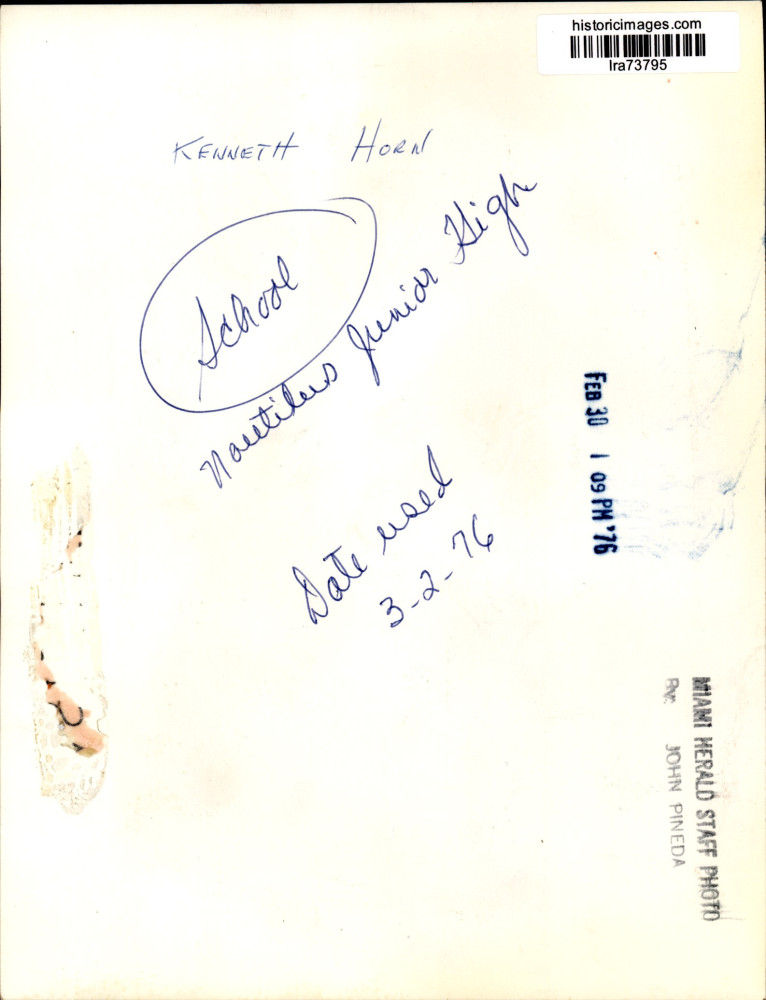 historicimages.com
lra73795
KENNETH HORN
School
Nautilus Junior High
Date used
3-2-76
FEB 30 1 09 PM '76
MIAMI HERALD STAFF PHOTO
By: JOHN PINEDA